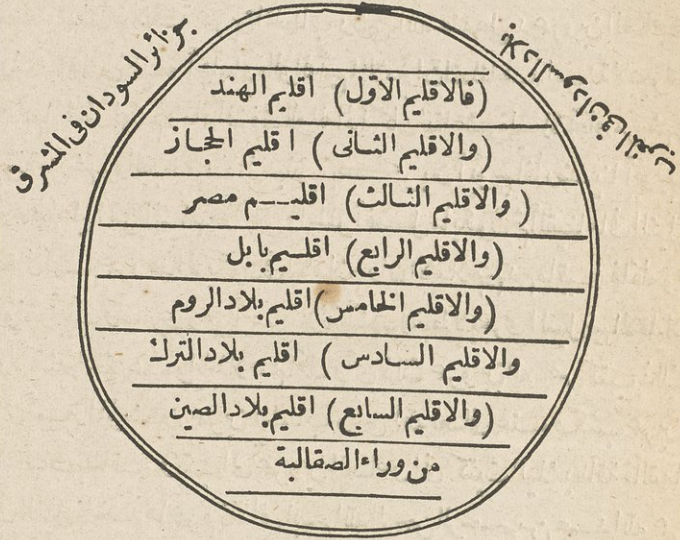 جزائر السودان فى المشرق
بلاد السودان فى المغرب
(فالاقليم الاول) اقليم الهند
(والاقليم الثانى) اقليم الحجاز
(والاقليم الثالث) اقليم مصر
(والاقليم الرابع) اقليم بابل
(والاقليم الخامس) اقليم بلاد الروم
والاقليم السادس) اقليم بلاد الترك
(والاقليم السابع) اقليم بلاد الصين
من وراء الصقالبة